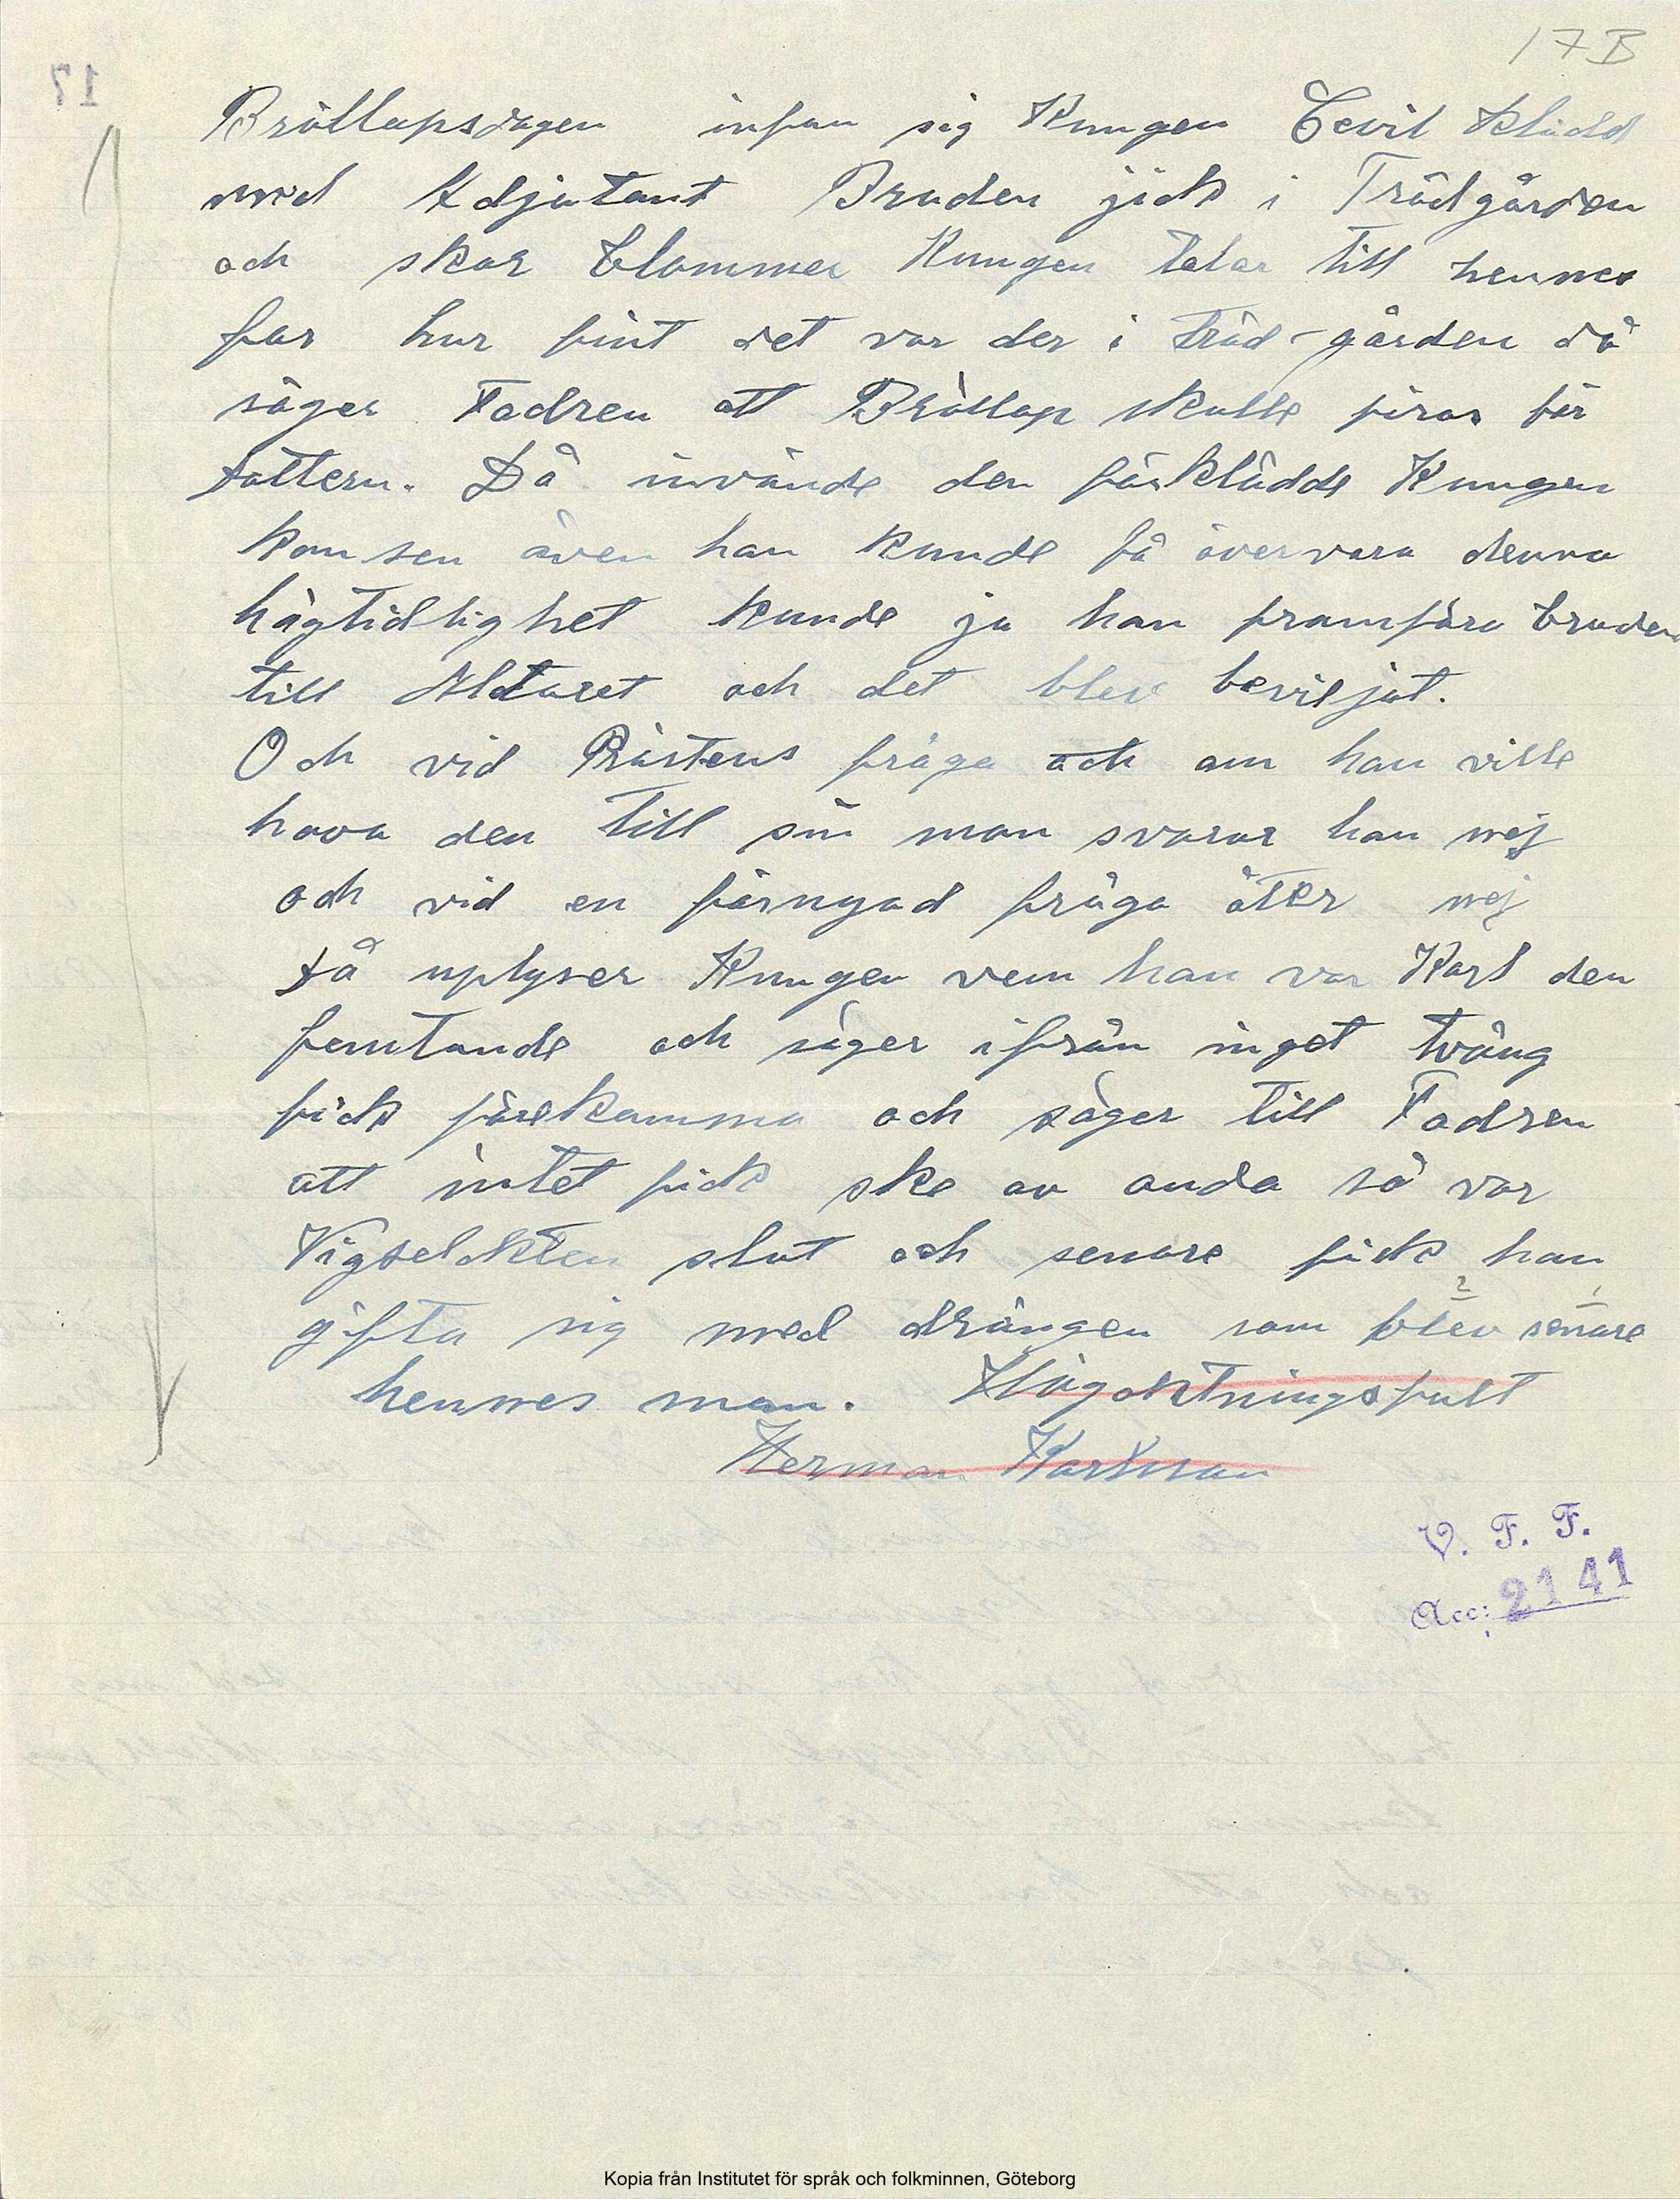 17 B
17
Bröllopsdagen infan sig Kungen Cevil klädd
med Adjutant Bruden jick i Trädgården
och skar blommer Kungen talar till hennes
far hur fint det var der i träd-gården då
säger Fadren att Bröllop skulle firas för
dottern. Då invände den förklädde Kungen
kansen även han kunde få övervara denna
högtidlighet kunde ja han framföra bruden
till Altaret och det blev beviljat.
Och vid Prästens fråga och om han ville
hava den till sin man svarar han nej
och vid en förnyad fråga åter nej
Då uplyser Kungen vem han var Karl den
femtande och säger ifrån inget tvång
fick förekomma och säger till Fadren
att intet fick ske av anda så var
Vigselakten slut och senare fick han
gifta sig med drängen som blev senare
hennes man. Högaktningsfult
Herman Karlsson
V. F. F.
Acc: 2141
Kopia från Institutet för språk och folkminnen, Göteborg